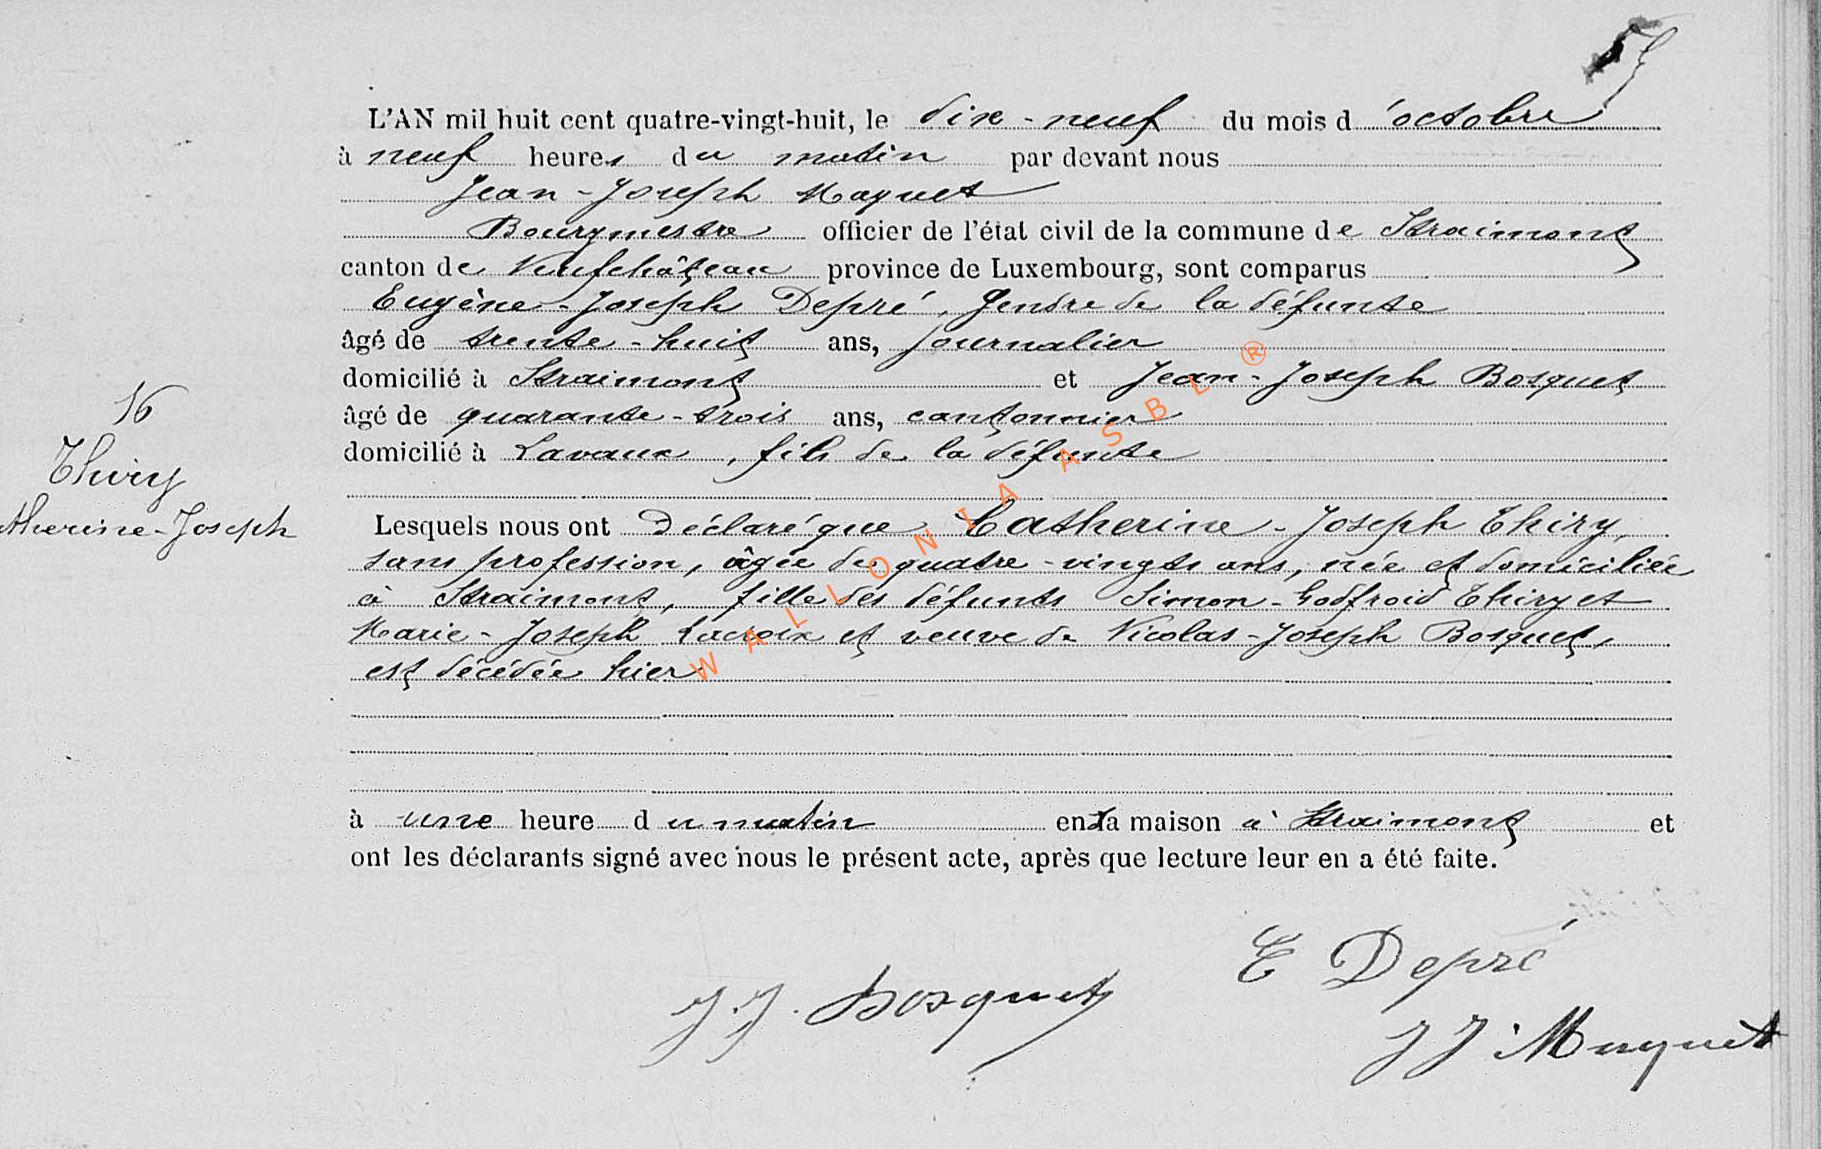 L'AN mil huit cent quatre-vingt-huit, le dix-neuf du mois d'octobre
à neuf heures du matin par devant nous
Jean-Joseph Maquet
Bourgmestre officier de l'état civil de la commune de Straimont
canton de Neufchâteau province de Luxembourg, sont comparus
Eugène-Joseph Depré, gendre de la défunte
âgé de trente-huit ans, journalier
domicilié à Straimont et Jean-Joseph Bosquet
16
âgé de quarante-trois ans, cantonnier
domicilié à Lavaux, fils de la défunte
Thiry
atherine-Joseph
Lesquels nous ont déclaré que Catherine-Joseph Thiry,
sans profession, âgée de quatre-vingts ans, née et domiciliée
à Straimont, fille des défunts Simon-Godfroid Thiry et
Marie-Joseph Lacroix et veuve de Nicolas-Joseph Bosquet,
est décédée hier
à une heure du matin en sa maison à Straimont et
ont les déclarants signé avec nous le présent acte, après que lecture leur en a été faite.
E Depré
J.J. Bosquet
J J Maquet
WALLONIA ASBL ®